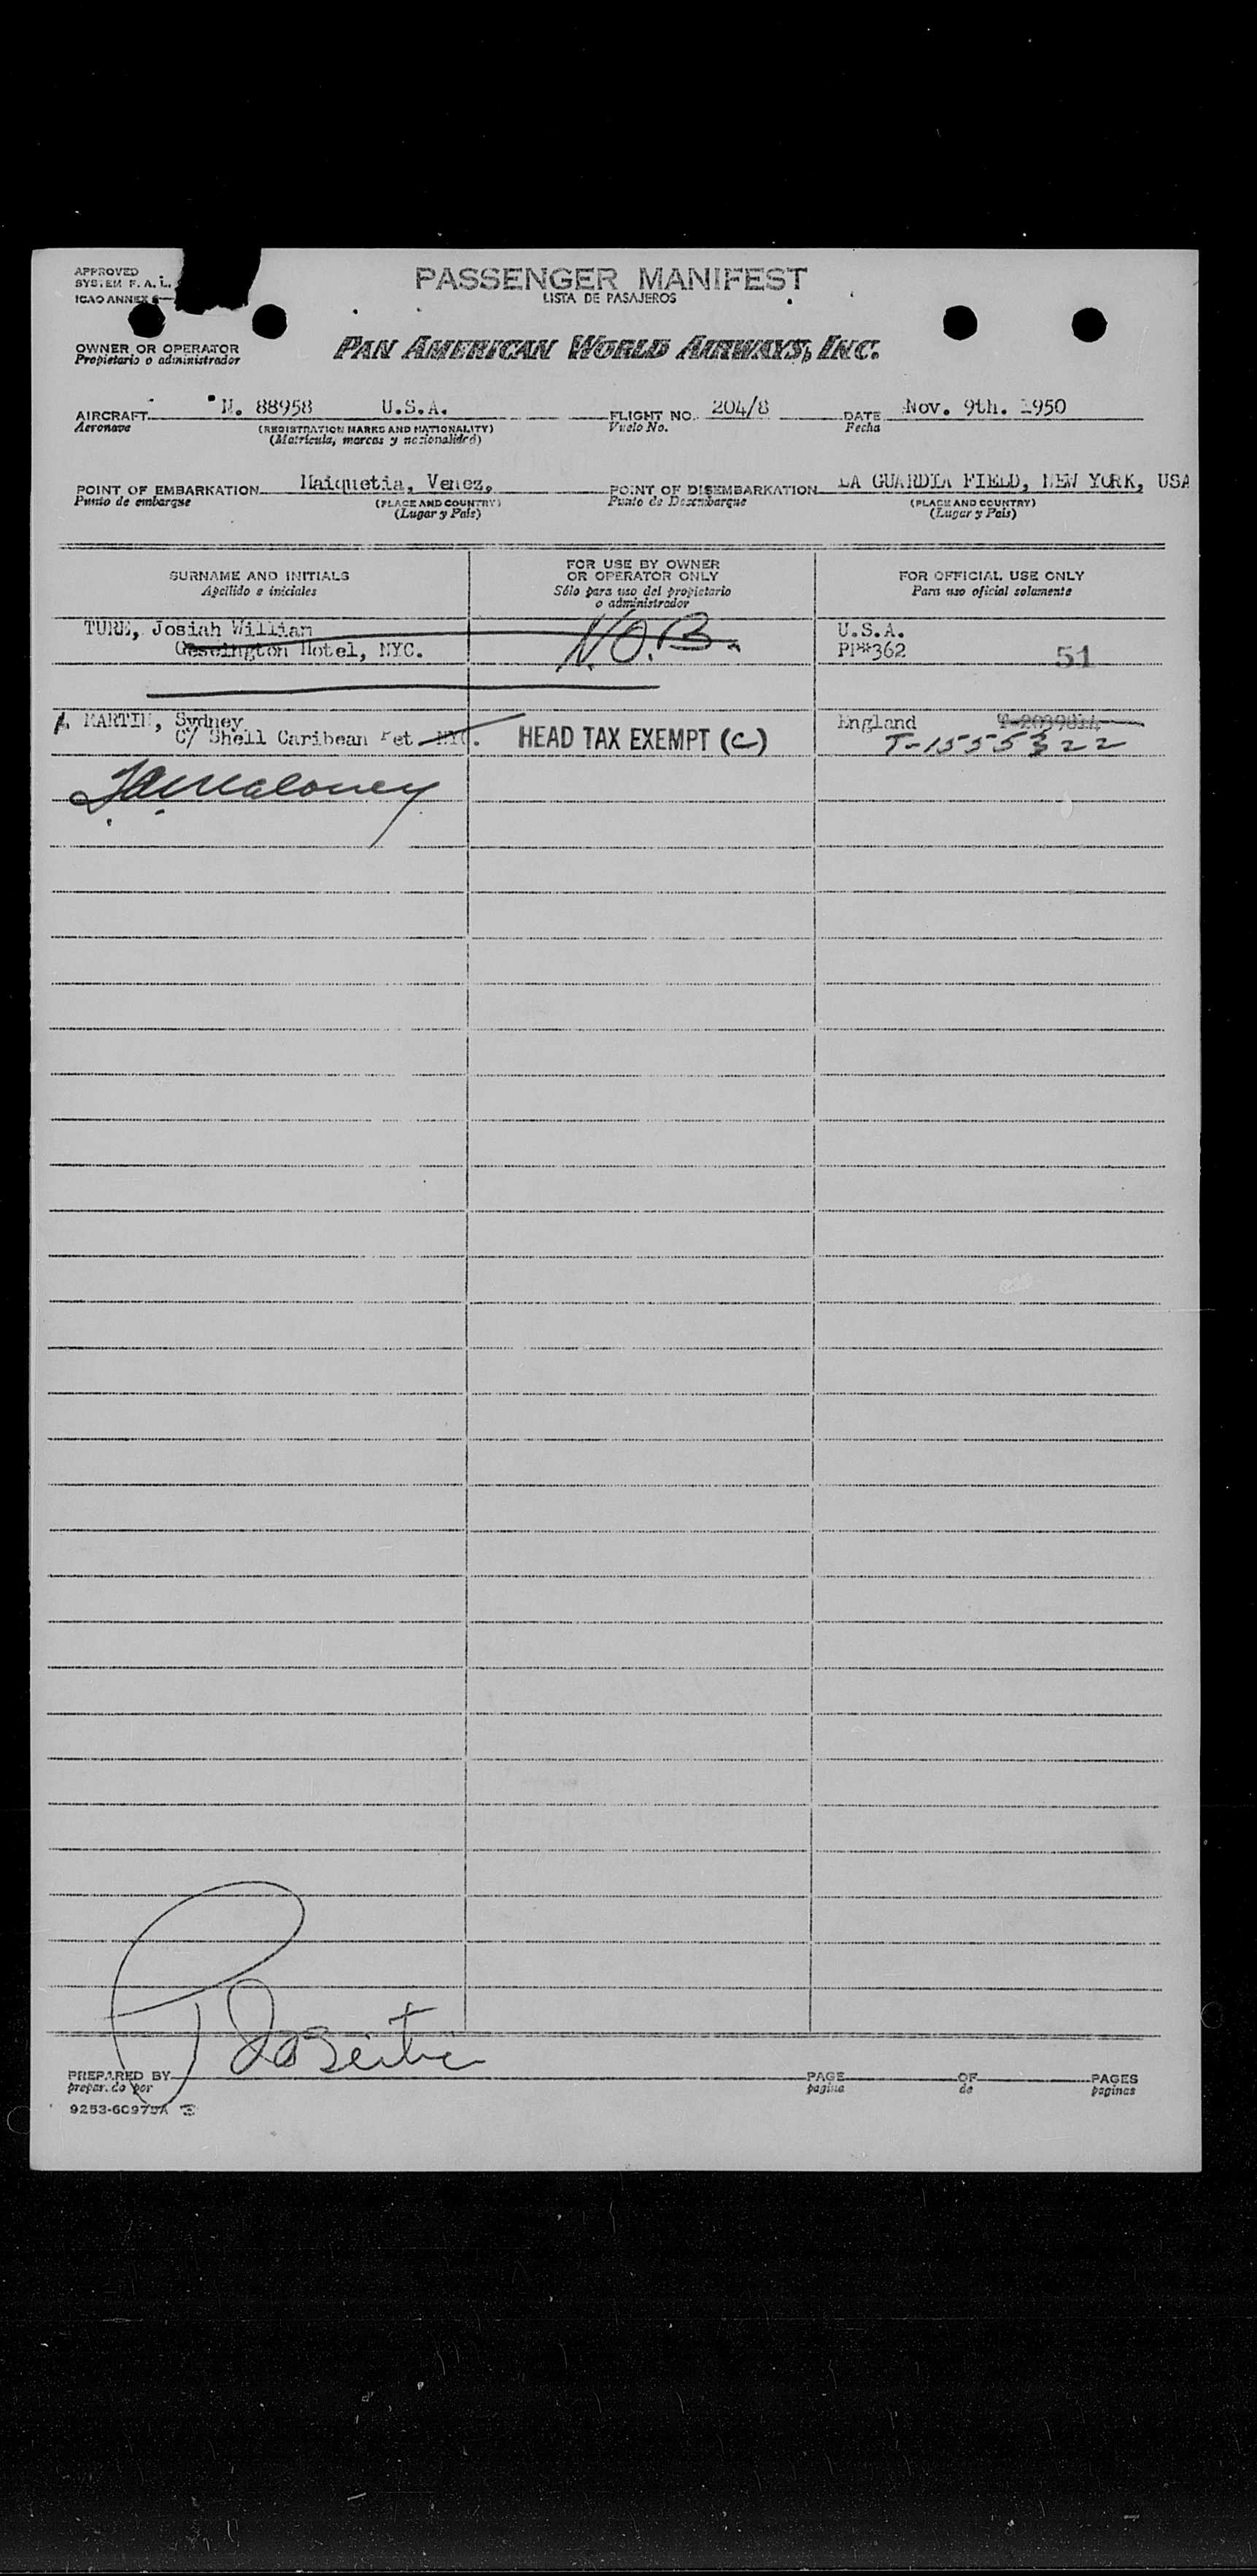 APPROVED
SYSTEM F. A. L.
ICAO ANNEX
PASSENGER MANIFEST
LISTA DE PASAJEROS
OWNER OR OPERATOR
Propietario o administrador
PAN AMERICAN WORLD AIRWAYS, INC.
AIRCRAFT N. 88958 U.S.A. FLIGHT NO. 204/8 DATE Nov. 9th. 1950
Aeronave (REGISTRATION MARKS AND NATIONALITY) Vuelo No. Fecha
(Matrícula, marcas y nacionalidad)
POINT OF EMBARKATION Maiquetia, Venez, POINT OF DISEMBARKATION LA GUARDIA FIELD, NEW YORK, USA
Punto de embarque (PLACE AND COUNTRY) Punto de Desembarque (PLACE AND COUNTRY)
(Lugar y País) (Lugar y País)
SURNAME AND INITIALS FOR USE BY OWNER OR OPERATOR ONLY FOR OFFICIAL USE ONLY
Apellido e iniciales Sólo para uso del propietario o administrador Para uso oficial solamente
Josiah William N.O.B. U.S.A.
Hotel, NYC. PP#362 51
MARTIN, Sydney England
C/ Shell Caribean Pet NYC. HEAD TAX EXEMPT (C) T-1555322
Maloney
PREPARED BY PAGE OF PAGES
preparado por pagina de paginas
9253-60975A